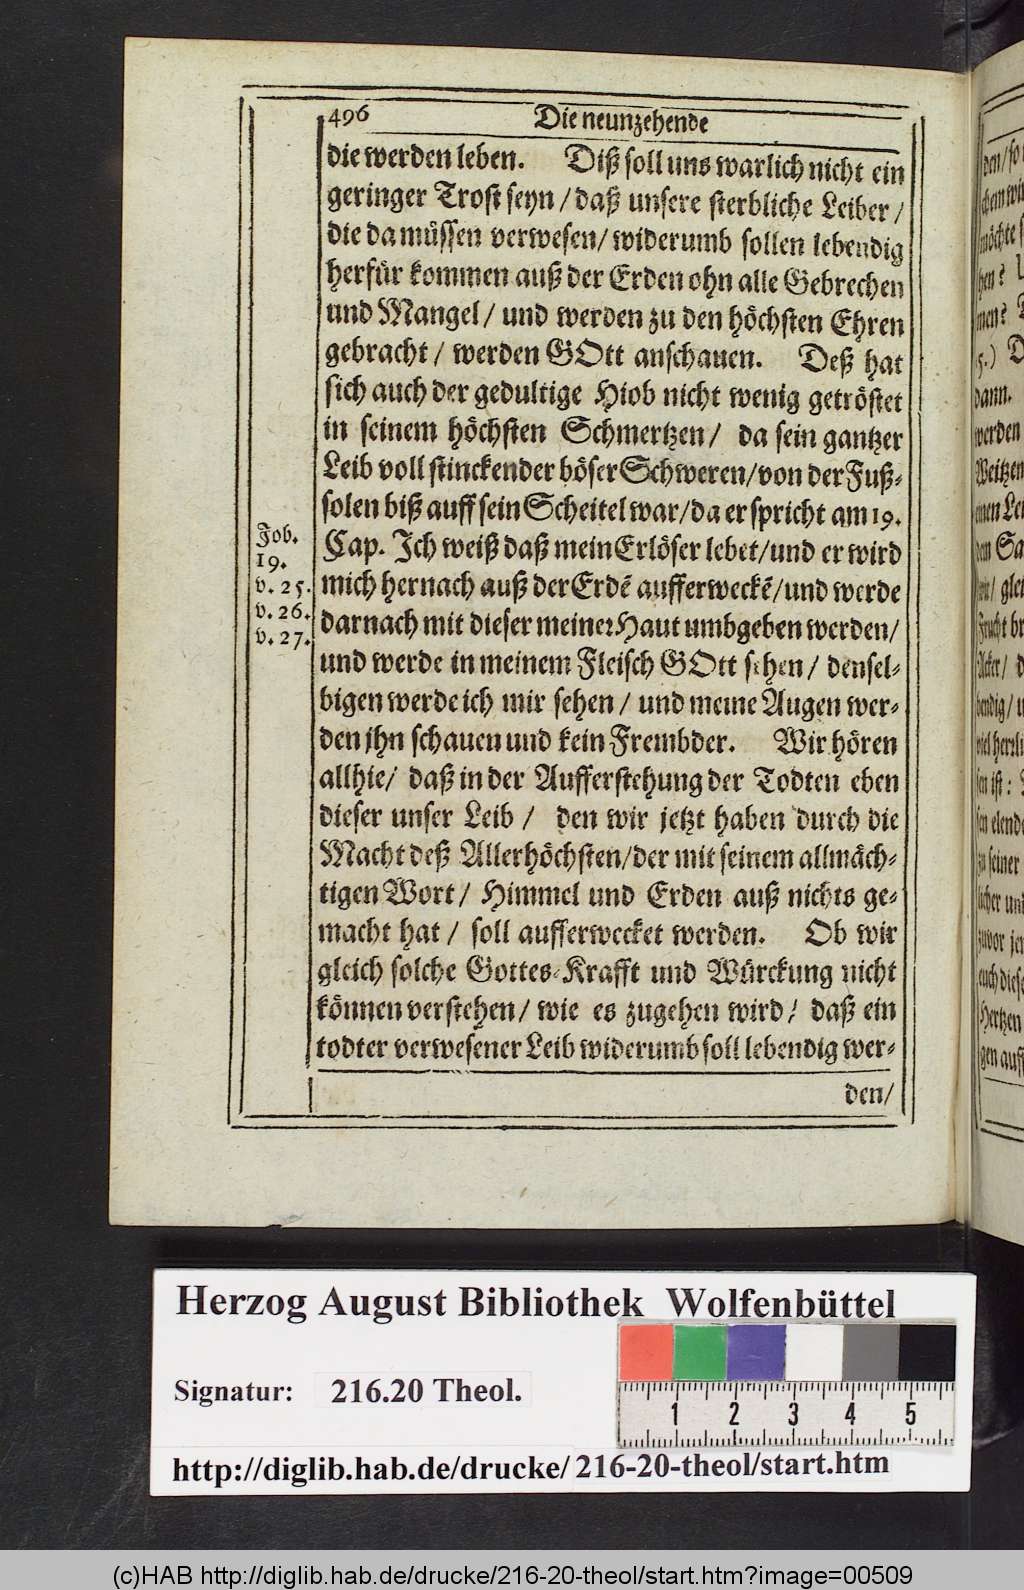 496 Die neunzehende
die werden leben. Diß soll uns warlich nicht ein
geringer Trost seyn / daß unsere sterbliche Leiber /
die da müssen verwesen / widerumb sollen lebendig
herfür kommen auß der Erden ohn alle Gebrechen
und Mangel / und werden zu den höchsten Ehren
gebracht / werden GOtt anschauen. Deß hat
sich auch der gedultige Hiob nicht wenig getröstet
in seinem höchsten Schmertzen / da sein gantzer
Leib voll stinckender böser Schweren / von der Fuß-
solen biß auff sein Scheitel war / da er spricht am 19.
Cap. Ich weiß daß mein Erlöser lebet / und er wird
mich hernach auß der Erdē aufferweckē / und werde
darnach mit dieser meiner Haut umbgeben werden /
und werde in meinem Fleisch GOtt sehen / densel-
bigen werde ich mir sehen / und meine Augen wer-
den ihn schauen und kein Frembder. Wir hören
allhie / daß in der Aufferstehung der Todten eben
dieser unser Leib / den wir jetzt haben durch die
Macht deß Allerhöchsten / der mit seinem allmäch-
tigen Wort / Himmel und Erden auß nichts ge-
macht hat / soll aufferwecket werden. Ob wir
gleich solche Gottes-Krafft und Würckung nicht
können verstehen / wie es zugehen wird / daß ein
todter verwesener Leib widerumb soll lebendig wer-
den /
Job.
19.
v. 25.
v. 26.
v. 27.
Herzog August Bibliothek Wolfenbüttel
Signatur: 216.20 Theol.
1 2 3 4 5
http://diglib.hab.de/drucke/216-20-theol/start.htm
(c)HAB http://diglib.hab.de/drucke/216-20-theol/start.htm?image=00509